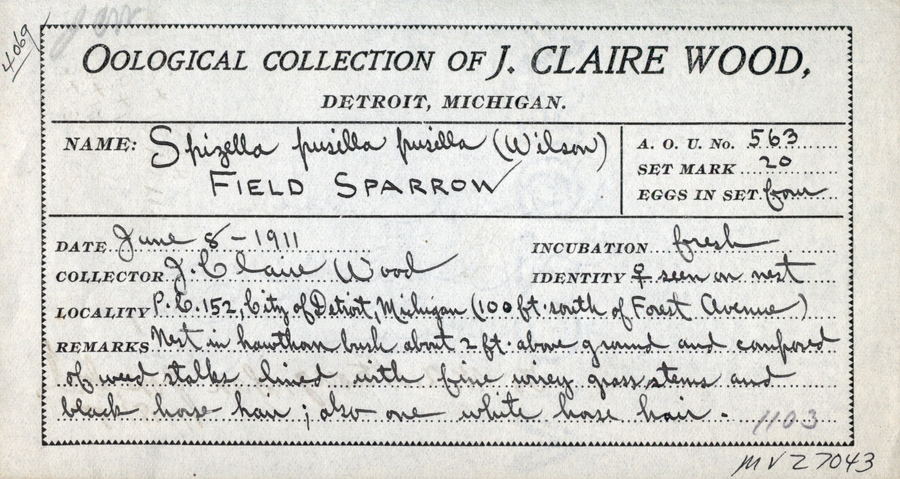 4069
OOLOGICAL COLLECTION OF J. CLAIRE WOOD,
DETROIT, MICHIGAN.
NAME: Spizella pusilla pusilla (Wilson)
FIELD SPARROW
A. O. U. No. 563
SET MARK 20
EGGS IN SET four
DATE June 8-1911
INCUBATION fresh
COLLECTOR J. Claire Wood
IDENTITY ♀ seen on nest
LOCALITY P.C. 152, City of Detroit, Michigan (100 ft. south of Forest Avenue)
REMARKS Nest in hawthorn bush about 2 ft. above ground and composed
of weed stalks lined with fine wirey grass stems and
black horse hair; also one white horse hair.
1103
MVZ 7043